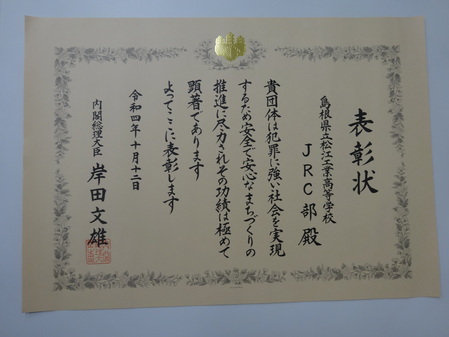 表彰状
島根県立松江工業高等学校
JRC部 殿
貴団体は犯罪に強い社会を実現
するため安全で安心なまちづくりの
推進に尽力されその功績は極めて
顕著であります
よってここに表彰します
令和四年十月十二日
内閣総理大臣 岸田文雄